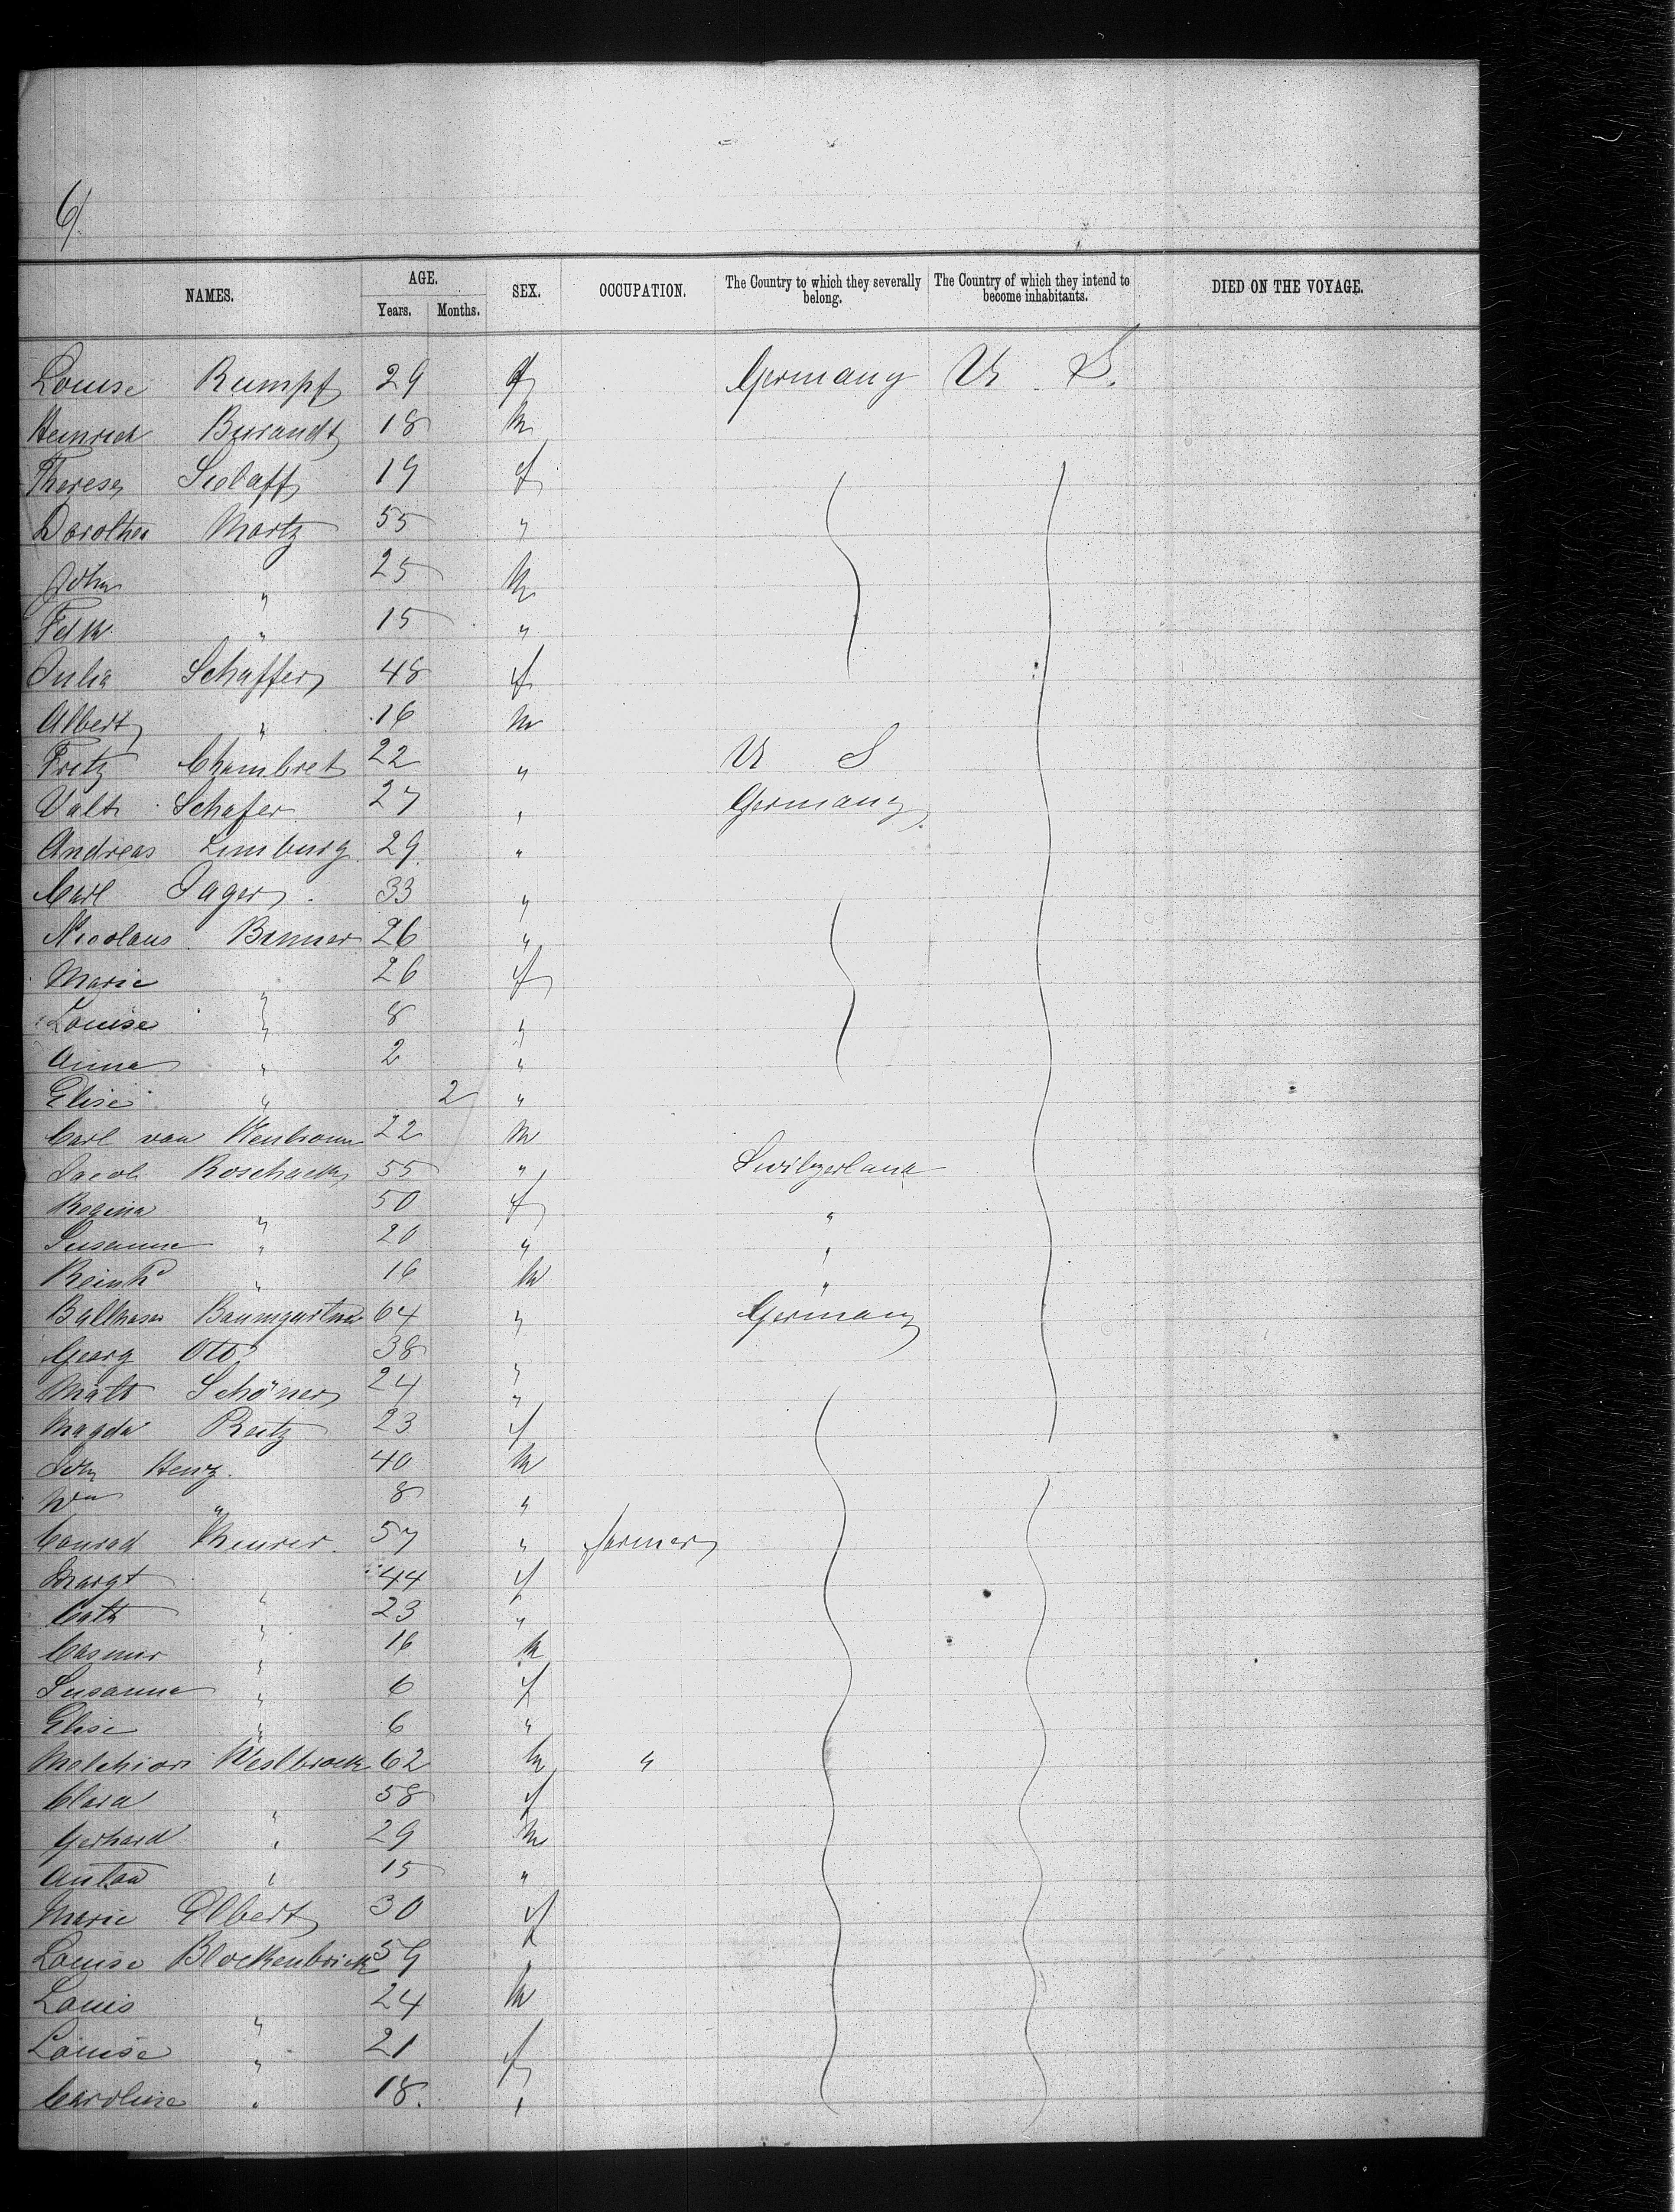 6/.
NAMES. AGE. Years. Months. SEX. OCCUPATION. The Country to which they severally belong. The Country of which they intend to become inhabitants. DIED ON THE VOYAGE.
Louise Rumpf 29 f Germany U. S.
Heinrich Burandt 18 m
Therese 19 f
Dorothea Martz 55 "
John " 25 m
" 15 "
Julia Schaffer 48 f
Albert " 16 m
Fritz Chambret 22 " U S
Valt Schafer 27 " Germany
Andreas Limburg 29 "
Carl Jager 33 "
Nicolaus 26 "
Marie " 26 f
Louise " 8 "
Anna " 2 "
Elise " 2 "
Carl van 22 m
Jacob Roschack 55 " Switzerland
Regina " 50 f "
Susanne " 20 " "
Reinhd " 16 m "
Balthasar Baumgartner 64 " Germany
Georg Otto 38 "
Math Schöner 24 "
Magda Reitz 23 f
John Henz 40 m
Wm " 8 "
Conrad Theurer 57 " farmer
Margt " 44 f
Cath " 23 "
Casimir " 16 m
Susanne " 6 f
Elise " 6 "
Melchior Westbrock 62 m "
Clara " 58 f
Gerhard " 29 m
Anton " 15 "
Marie Elbert 30 f
Louise Blockenbrick 59 "
Louis " 24 m
Louise " 21 f
Caroline " 18 "